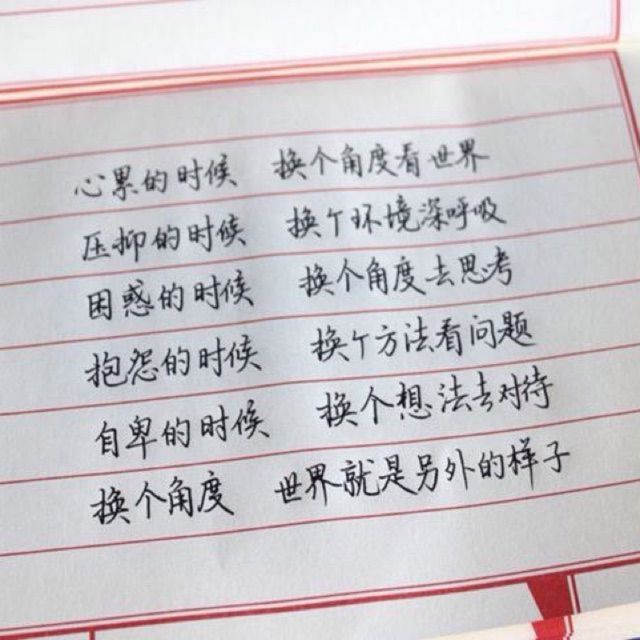 心累的时候 换个角度看世界
压抑的时候 换个环境深呼吸
困惑的时候 换个角度去思考
抱怨的时候 换个方法看问题
自卑的时候 换个想法去对待
换个角度 世界就是另外的样子